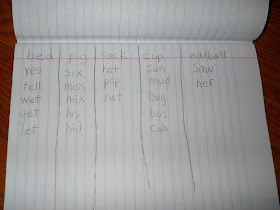 bed pig sock cup oddball
yes six hot sun saw
tell miss pop mud her
wet mix not bug
yet his bus
let hid cub